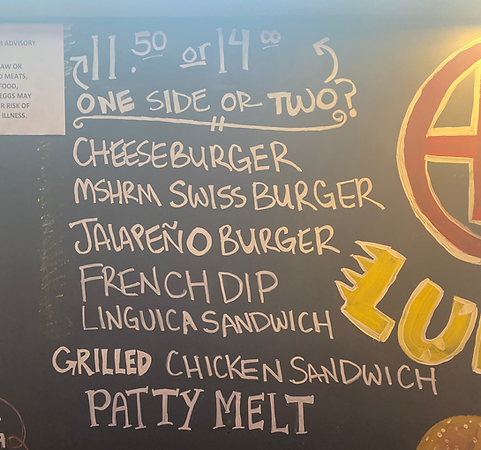 R ADVISORY
AW OR
D MEATS,
FOOD,
EGGS MAY
R RISK OF
ILLNESS.
11.50 or 14 00
ONE SIDE OR TWO?
CHEESEBURGER
MSHRM SWISS BURGER
JALAPEÑO BURGER
FRENCH DIP
LINGUICA SANDWICH
GRILLED CHICKEN SANDWICH
PATTY MELT
LU